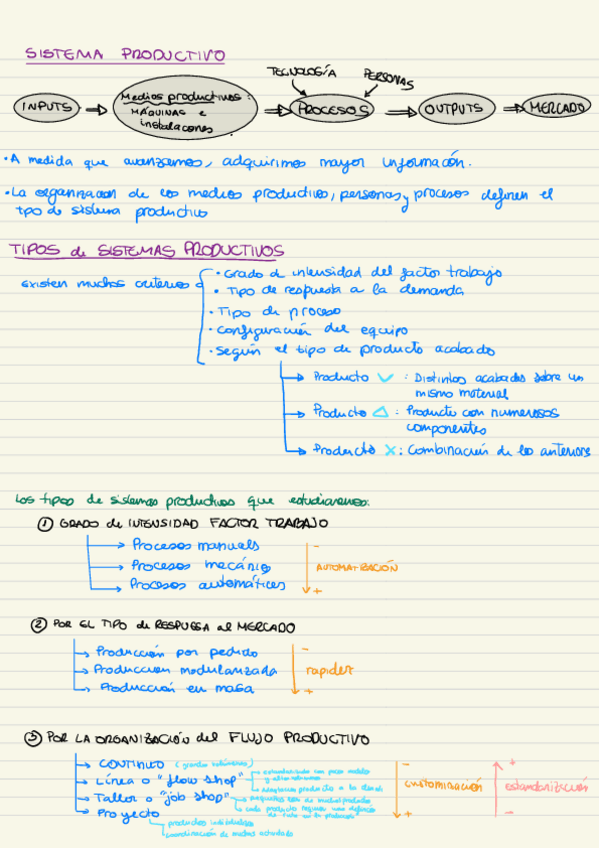 SISTEMA PRODUCTIVO
TECNOLOGÍA
PERSONAS
INPUTS
Medios productivos:
MÁQUINAS e
instalaciones
PROCESOS
OUTPUTS
MERCADO
• A medida que avanzamos, adquirimos mayor información.
• La organización de los medios productivos, personas y procesos definen el
tipo de sistema productivo
TIPOS de SISTEMAS PRODUCTIVOS
existen muchos criterios
• Grado de intensidad del factor trabajo
• Tipo de respuesta a la demanda
• Tipo de proceso
• configuración del equipo
• según el tipo de producto acabado
Producto V : Distintos acabados sobre un
mismo material
Producto △ : Producto con numerosos
componentes
Producto X : Combinación de los anteriores
Los tipos de sistemas productivos que estudiaremos:
① GRADO de INTENSIDAD FACTOR TRABAJO
Procesos manuals
Procesos mecánics
Procesos automátices
-
AUTOMATIZACIÓN
+
② POR EL TIPO de RESPUESA al MERCADO
Producción por pedido
Producción modularizada
Producción en masa
-
rapidez
+
③ POR LA ORGANIZACIÓN del FLUJO PRODUCTIVO
CONTINUO (grandes volúmenes)
Línea o "flow shop"
Taller o "job shop"
Proyecto
productos individuales
coordinación de muchas actividades
-
customización
+
+
estandarización
-